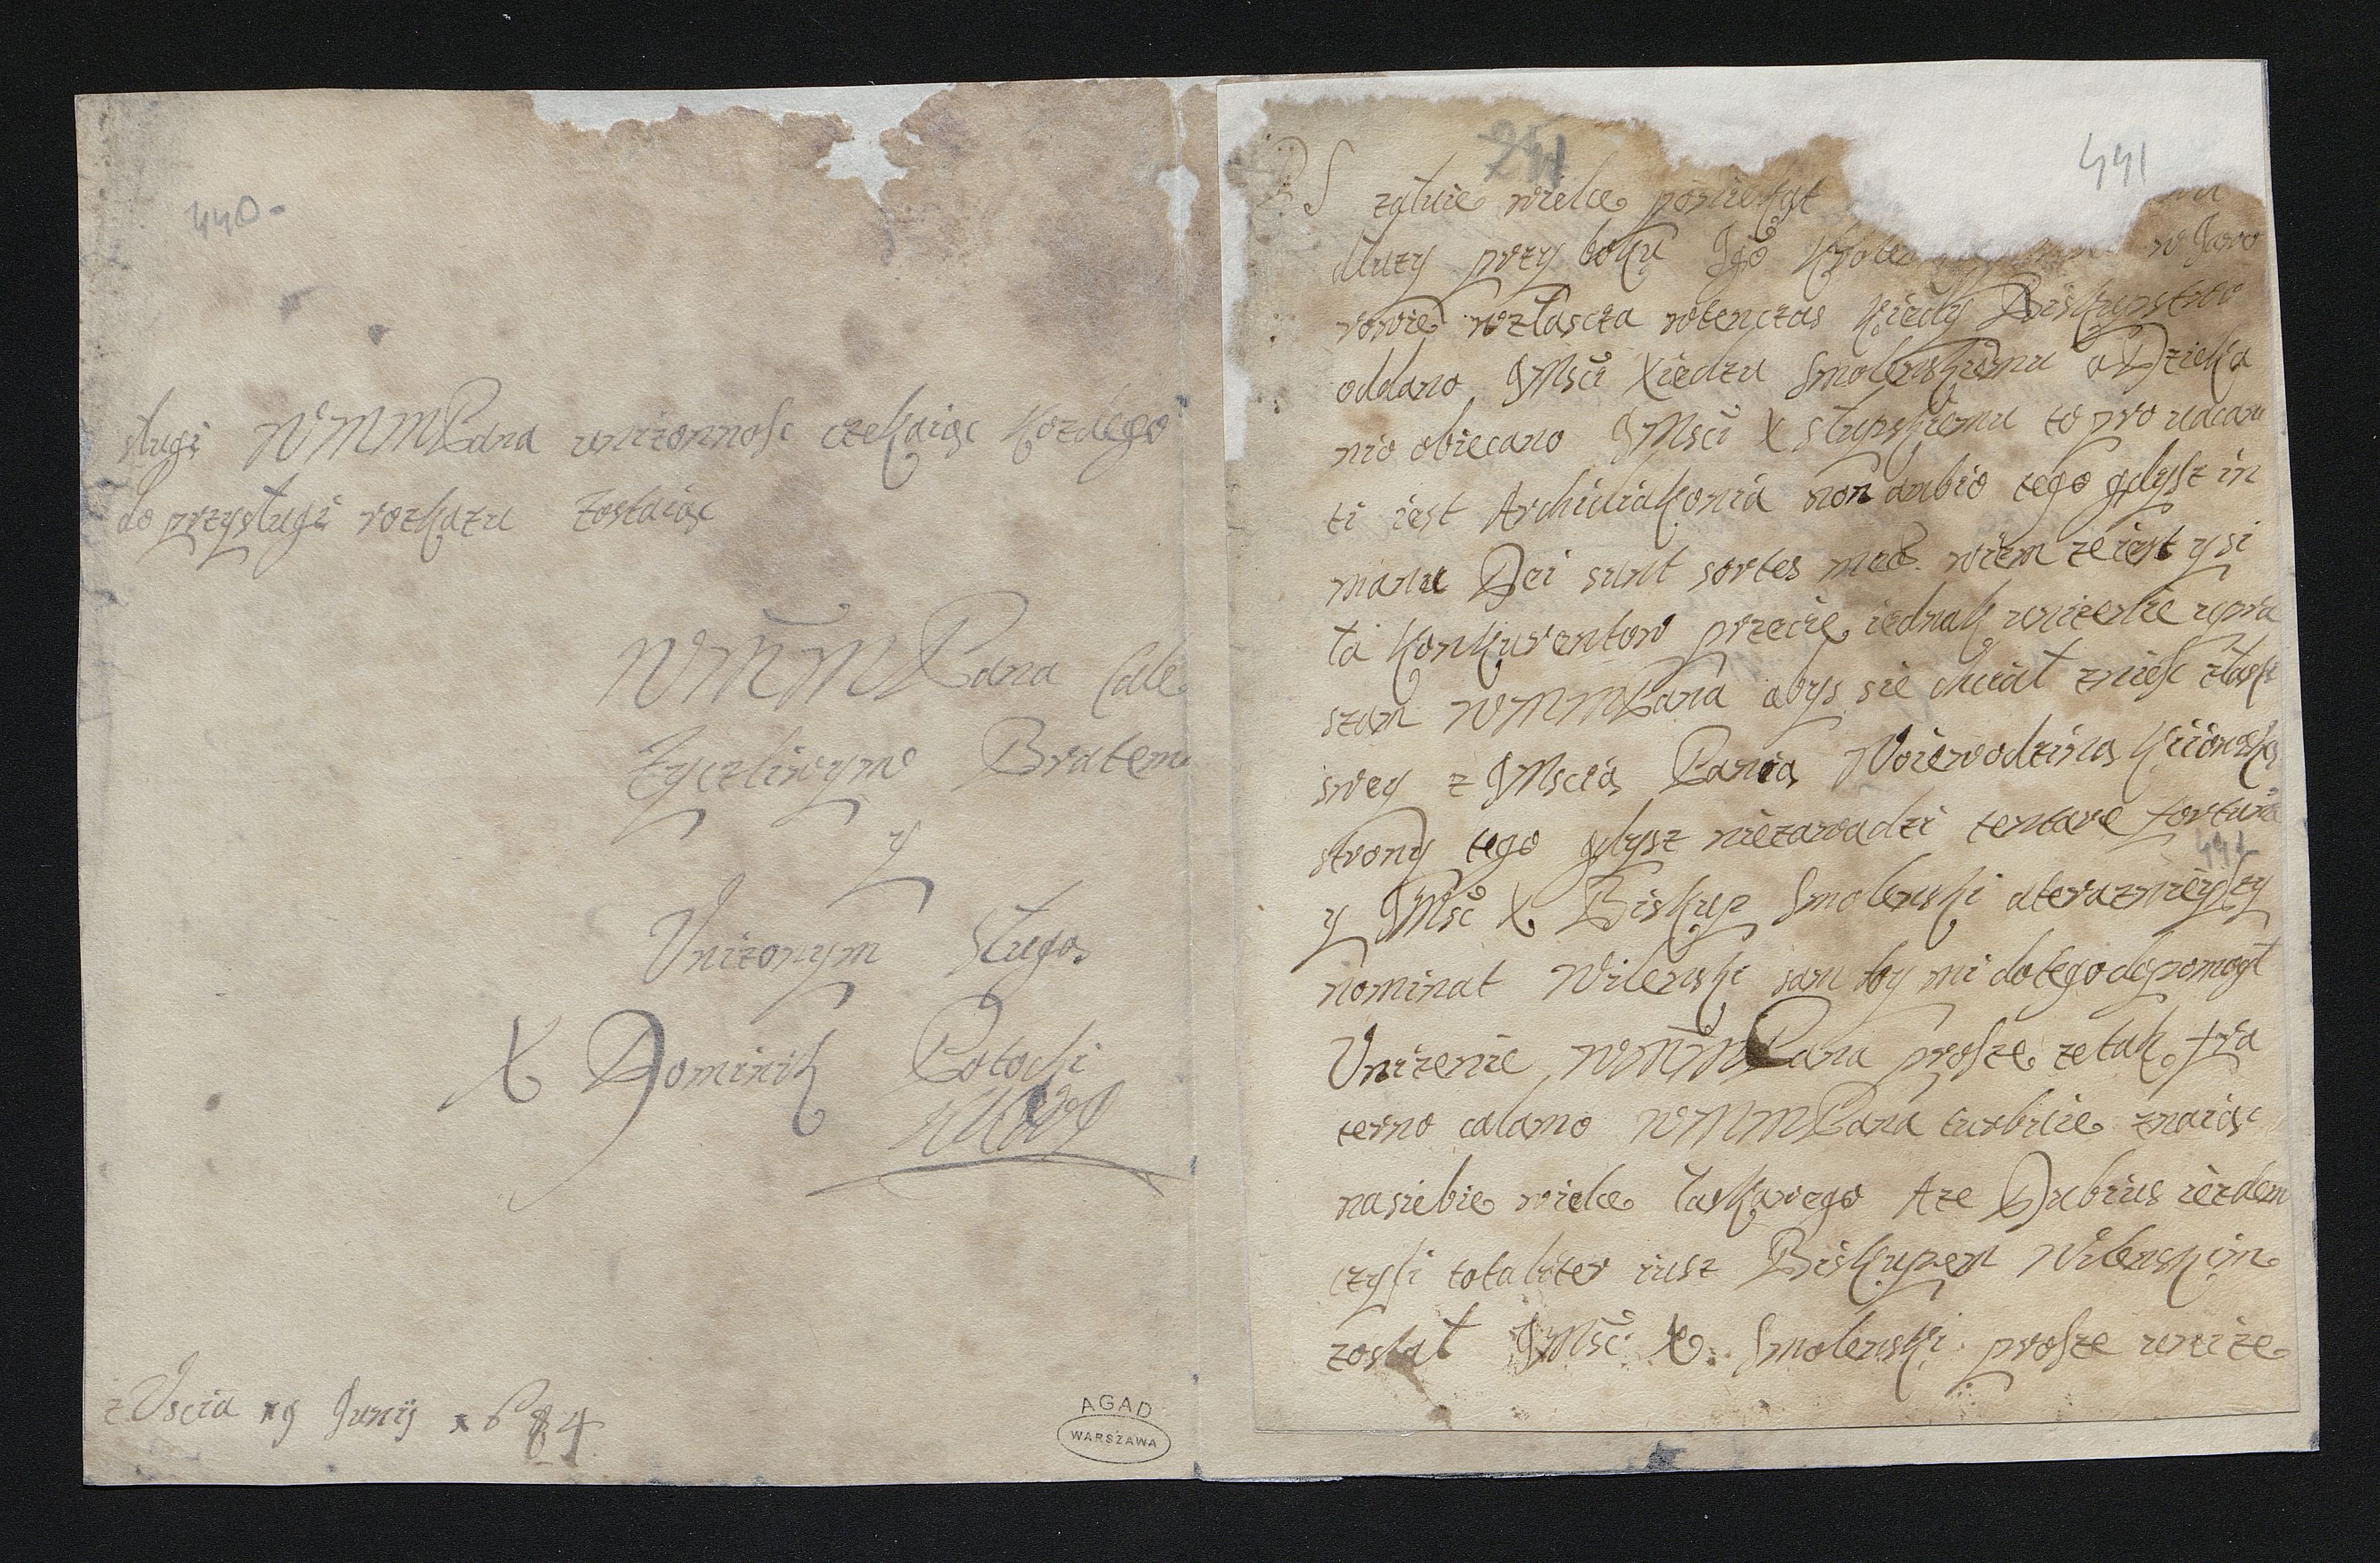 440
sługi WMMPana unizonnosc czekaiąc Kozdego
do przysługi rozkazu zostaiąc
WMMPana Cale
Zyczliwym Bratem
y
Unizonym Sługą
X Dominik Potocki
z Uscia 19 Junij 1684
AGAD
WARSZAWA
441
PS załuię wielce
dłuzy przy boku Jgo w Jawo
rowie wzłascza wtenczas kiedy Biskupstwo
oddano JMsci Xiedzu Smolenskiemu a Dzieka
nio obiecano JMsci X Słupskiemu to pro vacan
ti iest Archidiakonia non dubio tego gdysz in
manu Dei sunt sortes meae wiem ze iest y si
ła konkurentow przecię iednak unizenie upra
szam WMMPana abys się chciał zniesc złaski
swey z JMscią Panią Woiewodziną Kiiowską
strony tego gdysz niezawadzi tentare fortuna
441
y JMsc X Biskup Smolenski ateraznieyszy
nominat Wilenski sam by mi dotego dopomogł
Unizenie WMMPana proszę ze tak fra
terno calamo WMMPana turbuię znaiąc
nasiebie wielce łaskawego Aze Dubius iezdem
czyli totaliter iusz Biskupem Wilenskim
został JMsc X. Smolenski proszę unize